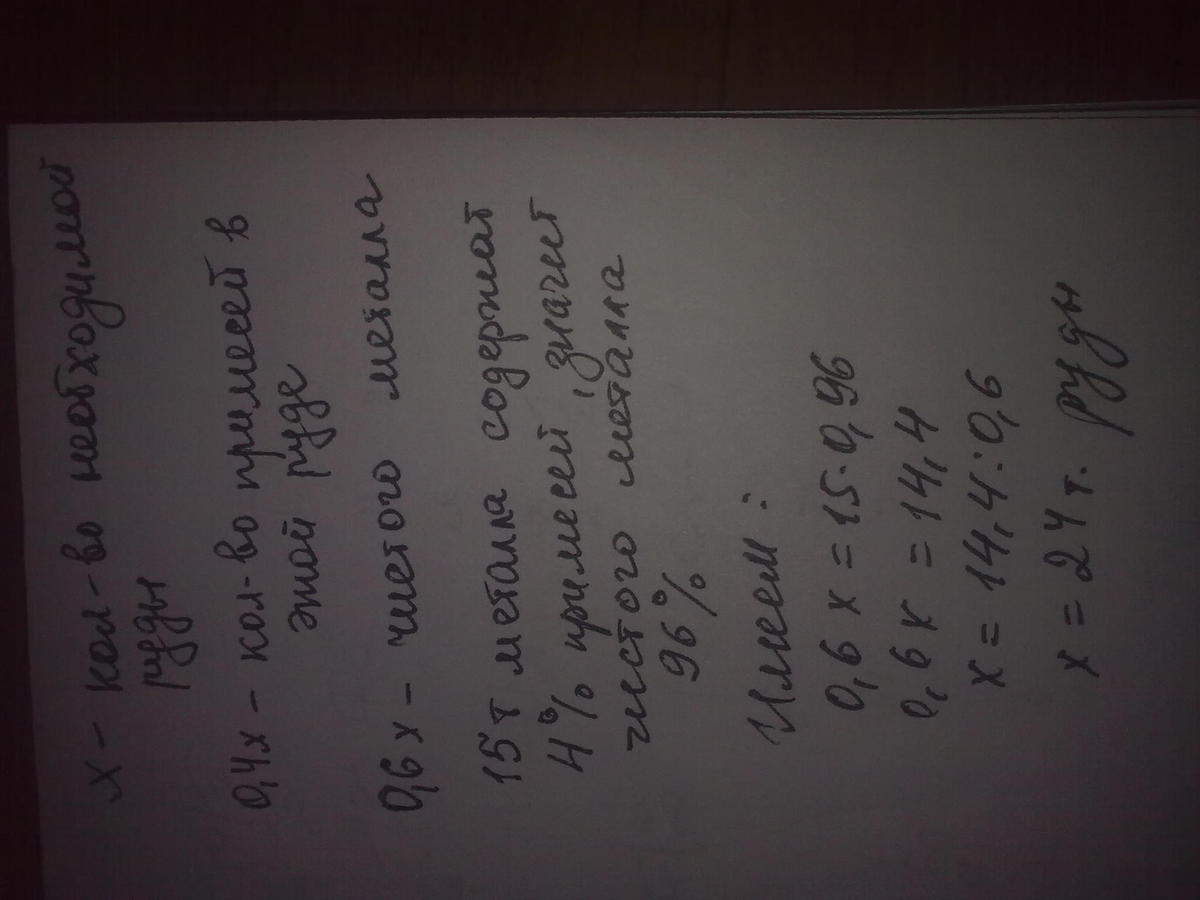 x - кол-во необходимой
руды
0,4x - кол-во примесей в
этой руде
0,6x - чистого металла
15 т металла содержат
4% примесей, значит
чистого металла
96%
Имеем:
0,6x = 15·0,96
0,6x = 14,4
x = 14,4:0,6
x = 24 т. руды